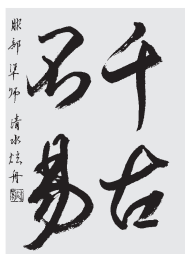 千古
不易
服部準師 清水炫舟